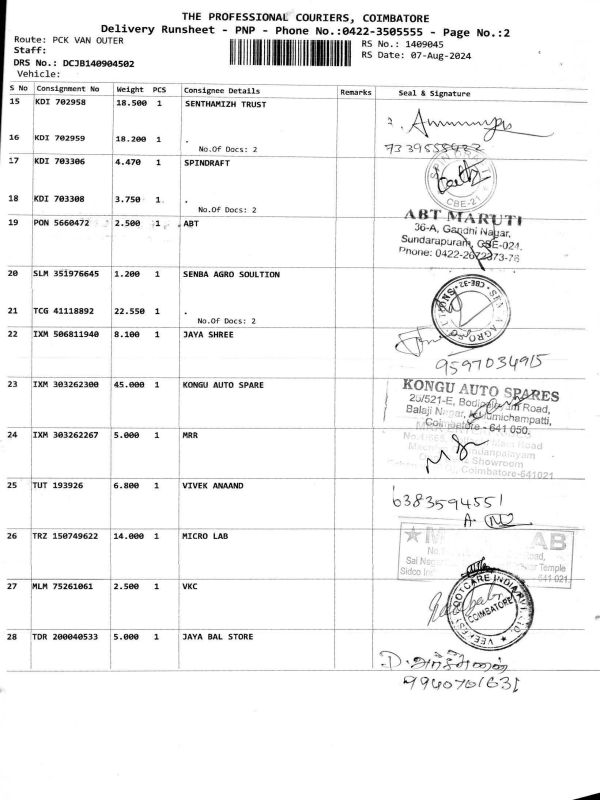 THE PROFESSIONAL COURIERS, COIMBATORE
Delivery Runsheet - PNP - Phone No.:0422-3505555 - Page No.:2
Route: PCK VAN OUTER
RS No.: 1409045
Staff:
RS Date: 07-Aug-2024
DRS No.: DCJB140904502
Vehicle:
S No Consignment No Weight PCS Consignee Details Remarks Seal & Signature
15 KDI 702958 18.500 1 SENTHAMIZH TRUST
16 KDI 702959 18.200 1 .
No.Of Docs: 2
17 KDI 703306 4.470 1 SPINDRAFT
CBE-21
18 KDI 703308 3.750 1 .
No.Of Docs: 2
19 PON 5660472 2.500 1 ABT
ABT MARUTI
36-A, Gandhi Nagar,
Sundarapuram, CBE-024.
Phone: 0422-2672373-76
20 SLM 351976645 1.200 1 SENBA AGRO SOULTION
CBE-32
21 TCG 41118892 22.550 1 .
No.Of Docs: 2
22 IXM 506811940 8.100 1 JAYA SHREE
9597034915
23 IXM 303262300 45.000 1 KONGU AUTO SPARE
KONGU AUTO SPARES
Balaji Nagar,
Coimbatore - 641 050.
24 IXM 303262267 5.000 1 MRR
Showroom
Coimbatore-641021
25 TUT 193926 6.800 1 VIVEK ANAAND
6383594551
26 TRZ 150749622 14.000 1 MICRO LAB
LAB
Road,
Temple
641 021.
27 MLM 75261061 2.500 1 VKC
FOOTCARE INDIA PVT. LTD.
COIMBATORE
28 TDR 200040533 5.000 1 JAYA BAL STORE
9940701631